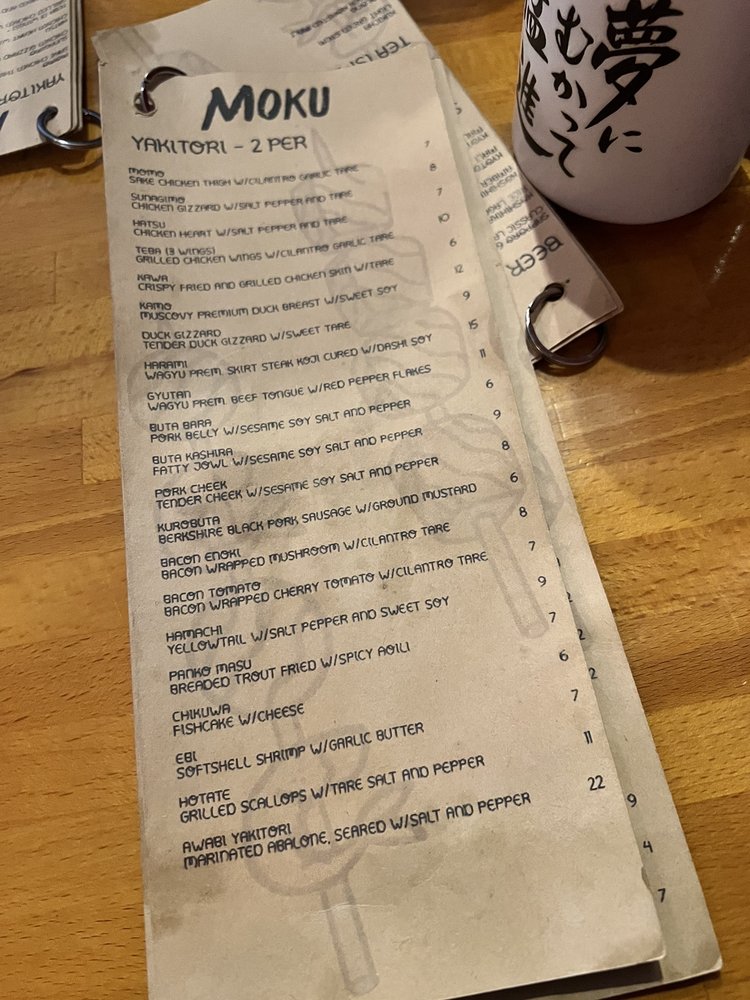 MOKU
YAKITORI - 2 PER
MOMO 7
SAKE CHICKEN THIGH W/CILANTRO GARLIC TARE
SUNAGIMO 8
CHICKEN GIZZARD W/SALT PEPPER AND TARE
HATSU 7
CHICKEN HEART W/SALT PEPPER AND TARE
TEBA (3 WINGS) 10
GRILLED CHICKEN WINGS W/CILANTRO GARLIC TARE
KAWA 6
CRISPY FRIED AND GRILLED CHICKEN SKIN W/TARE
KAMO 12
MUSCOVY PREMIUM DUCK BREAST W/SWEET SOY
DUCK GIZZARD 9
TENDER DUCK GIZZARD W/SWEET TARE
HARAMI 15
WAGYU PREM. SKIRT STEAK KOJI CURED W/DASHI SOY
GYUTAN 11
WAGYU PREM. BEEF TONGUE W/RED PEPPER FLAKES
BUTA BARA 6
PORK BELLY W/SESAME SOY SALT AND PEPPER
BUTA KASHIRA 9
FATTY JOWL W/SESAME SOY SALT AND PEPPER
PORK CHEEK 8
TENDER CHEEK W/SESAME SOY SALT AND PEPPER
KUROBUTA 6
BERKSHIRE BLACK PORK SAUSAGE W/GROUND MUSTARD
BACON ENOKI 8
BACON WRAPPED MUSHROOM W/CILANTRO TARE
BACON TOMATO 7
BACON WRAPPED CHERRY TOMATO W/CILANTRO TARE
HAMACHI 9
YELLOWTAIL W/SALT PEPPER AND SWEET SOY
PANKO MASU 7
BREADED TROUT FRIED W/SPICY AOILI
CHIKUWA 6
FISHCAKE W/CHEESE
EBI 7
SOFTSHELL SHRIMP W/GARLIC BUTTER
HOTATE 11
GRILLED SCALLOPS W/TARE SALT AND PEPPER
AWABI YAKITORI 22
MARINATED ABALONE, SEARED W/SALT AND PEPPER
2
2
2
9
4
7
BEER
YAKITOR
夢に
むかって
進